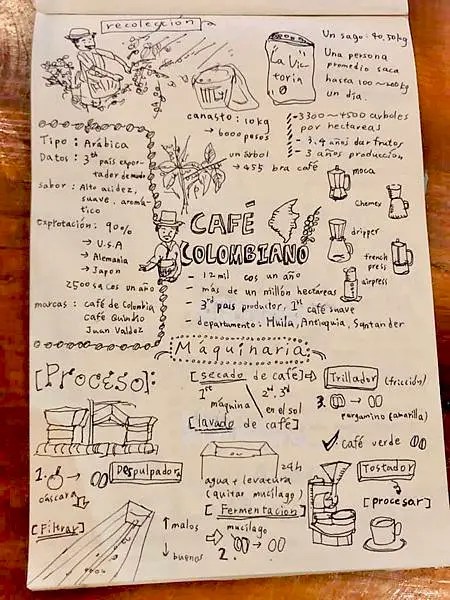 recolección
Un saco: 40, 50kg
Una persona
promedio saca
hasta 100~200kg
un día.
La Vic
toria
canasto: 10kg
→ 6000 pesos
3300~4500 arboles
por hectareas
- 3, 4 años dar frutos
- 3 años producción
un árbol
→ 455 bra café
Tipo: Arábica
Datos: 3th país expor-
tador de mundo
sabor: Alto acidez,
suave. aromá-
tico
explotación: 90%
→ U.S.A
→ Alemania
→ Japon
2500 sacos un año
marcas: café de Colombia
café Quindío
Juan Valdez
moca
Chemex
dripper
french
press
airpress
CAFÉ
COLOMBIANO
- 12 mil cos un año
- más de un millón hectáreas
- 3rd país productor, 1st café suave
- departamento: Huila, Antioquia, Santander
Maquinaria:
[Proceso]:
[secado de café]
1st 2nd. 3rd
máquina en el sol
[lavado de café]
Trillador (fricción)
3.
pergamino (amarilla)
café verde
1.
cáscara
Despulpador
24h
agua + levatura
(quitar mucílago)
[Fermentacion]
mucílago
2.
Tostador
[procesar]
[Filtrar]
↑ malos
↓ buenos